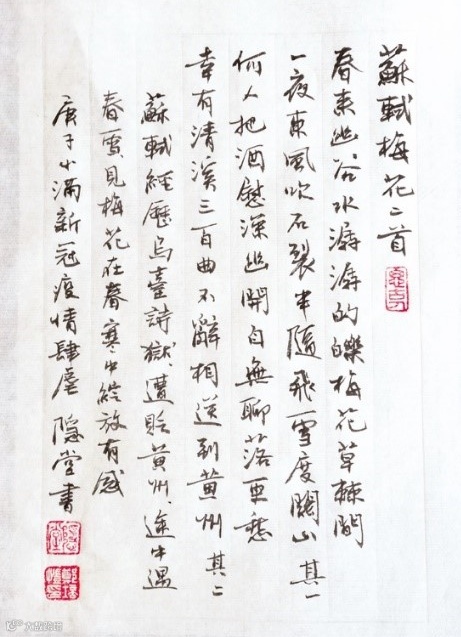 蘇軾梅花二首
春來幽谷水潺潺的皪梅花草棘間
一夜東風吹石裂半隨飛雪度關山 其一
何人把酒慰深幽開自無聊落更愁
幸有清溪三百曲不辭相送到黃州 其二
蘇軾經歷烏臺詩獄、遭貶黃州、途中遇
春雪見梅花在春寒中綻放有感
庚子小滿新冠疫情肆虐 隱堂書